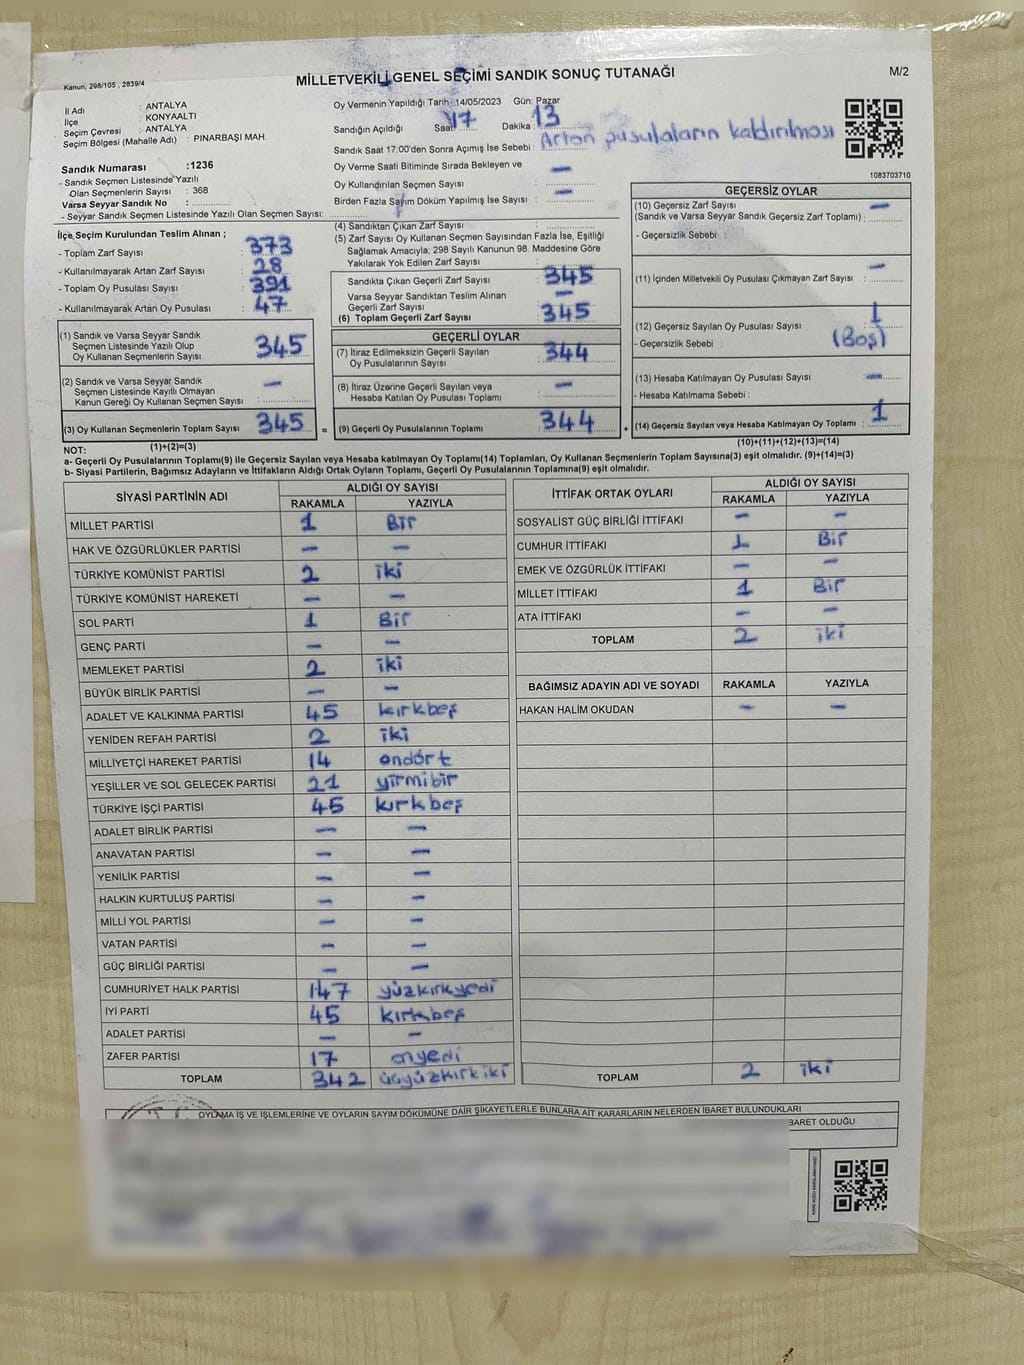 Kanun; 298/105 , 2839/4
MİLLETVEKİLİ GENEL SEÇİMİ SANDIK SONUÇ TUTANAĞI
M/2
İl Adı : ANTALYA
İlçe : KONYAALTI
Seçim Çevresi : ANTALYA
Seçim Bölgesi (Mahalle Adı) : PINARBAŞI MAH.
Sandık Numarası :1236
- Sandık Seçmen Listesinde Yazılı
Olan Seçmenlerin Sayısı : 368
Varsa Seyyar Sandık No :
- Seyyar Sandık Seçmen Listesinde Yazılı Olan Seçmen Sayısı:
Oy Vermenin Yapıldığı Tarih: 14/05/2023 Gün: Pazar
Sandığın Açıldığı Saat: 17 Dakika : 13
Sandık Saat 17:00'den Sonra Açımış İse Sebebi : Artan pusulaların kaldırılması
Oy Verme Saati Bitiminde Sırada Bekleyen ve : —
Oy Kullandırılan Seçmen Sayısı
Birden Fazla Sayım Döküm Yapılmış İse Sayısı : —
1083703710
İlçe Seçim Kurulundan Teslim Alınan ;
- Toplam Zarf Sayısı : 373
- Kullanılmayarak Artan Zarf Sayısı : 28
- Toplam Oy Pusulası Sayısı : 391
- Kullanılmayarak Artan Oy Pusulası : 47
(1) Sandık ve Varsa Seyyar Sandık
Seçmen Listesinde Yazılı Olup
Oy Kullanan Seçmenlerin Sayısı : 345
(2) Sandık ve Varsa Seyyar Sandık
Seçmen Listesinde Kayıtlı Olmayan
Kanun Gereği Oy Kullanan Seçmen Sayısı : —
(3) Oy Kullanan Seçmenlerin Toplam Sayısı : 345 =
(4) Sandıktan Çıkan Zarf Sayısı :
(5) Zarf Sayısı Oy Kullanan Seçmen Sayısından Fazla İse, Eşitliği
Sağlamak Amacıyla; 298 Sayılı Kanunun 98. Maddesine Göre
Yakılarak Yok Edilen Zarf Sayısı :
Sandıkta Çıkan Geçerli Zarf Sayısı : 345
Varsa Seyyar Sandıktan Teslim Alınan
Geçerli Zarf Sayısı : —
(6) Toplam Geçerli Zarf Sayısı : 345
GEÇERLİ OYLAR
(7) İtiraz Edilmeksizin Geçerli Sayılan
Oy Pusulalarının Sayısı : 344
(8) İtiraz Üzerine Geçerli Sayılan veya
Hesaba Katılan Oy Pusulası Toplamı : —
(9) Geçerli Oy Pusulalarının Toplamı : 344 +
GEÇERSİZ OYLAR
(10) Geçersiz Zarf Sayısı —
(Sandık ve Varsa Seyyar Sandık Geçersiz Zarf Toplamı) :
- Geçersizlik Sebebi :
(11) İçinden Milletvekili Oy Pusulası Çıkmayan Zarf Sayısı : —
(12) Geçersiz Sayılan Oy Pusulası Sayısı : 1
- Geçersizlik Sebebi : (Boş)
(13) Hesaba Katılmayan Oy Pusulası Sayısı : —
- Hesaba Katılmama Sebebi :
(14) Geçersiz Sayılan veya Hesaba Katılmayan Oy Toplamı : 1
NOT: (1)+(2)=(3) (10)+(11)+(12)+(13)=(14)
a- Geçerli Oy Pusulalarının Toplamı(9) ile Geçersiz Sayılan veya Hesaba katılmayan Oy Toplamı(14) Toplamları, Oy Kullanan Seçmenlerin Toplam Sayısına(3) eşit olmalıdır. (9)+(14)=(3)
b- Siyasi Partilerin, Bağımsız Adayların ve İttifakların Aldığı Ortak Oyların Toplamı, Geçerli Oy Pusulalarının Toplamına(9) eşit olmalıdır.
SİYASİ PARTİNİN ADI ALDIĞI OY SAYISI
RAKAMLA YAZIYLA
MİLLET PARTİSİ 1 Bir
HAK VE ÖZGÜRLÜKLER PARTİSİ — —
TÜRKİYE KOMÜNİST PARTİSİ 2 iki
TÜRKİYE KOMÜNİST HAREKETİ — —
SOL PARTİ 1 Bir
GENÇ PARTİ — —
MEMLEKET PARTİSİ 2 iki
BÜYÜK BİRLİK PARTİSİ — —
ADALET VE KALKINMA PARTİSİ 45 kırkbeş
YENİDEN REFAH PARTİSİ 2 iki
MİLLİYETÇİ HAREKET PARTİSİ 14 ondört
YEŞİLLER VE SOL GELECEK PARTİSİ 21 yirmibir
TÜRKİYE İŞÇİ PARTİSİ 45 kırkbeş
ADALET BİRLİK PARTİSİ — —
ANAVATAN PARTİSİ — —
YENİLİK PARTİSİ — —
HALKIN KURTULUŞ PARTİSİ — —
MİLLİ YOL PARTİSİ — —
VATAN PARTİSİ — —
GÜÇ BİRLİĞİ PARTİSİ — —
CUMHURİYET HALK PARTİSİ 147 yüzkırkyedi
İYİ PARTİ 45 kırkbeş
ADALET PARTİSİ — —
ZAFER PARTİSİ 17 onyedi
TOPLAM 342 üçyüzkırkiki
İTTİFAK ORTAK OYLARI ALDIĞI OY SAYISI
RAKAMLA YAZIYLA
SOSYALİST GÜÇ BİRLİĞİ İTTİFAKI — —
CUMHUR İTTİFAKI 1 Bir
EMEK VE ÖZGÜRLÜK İTTİFAKI — —
MİLLET İTTİFAKI 1 Bir
ATA İTTİFAKI — —
TOPLAM 2 iki
BAĞIMSIZ ADAYIN ADI VE SOYADI RAKAMLA YAZIYLA
HAKAN HALİM OKUDAN — —
TOPLAM 2 iki
OYLAMA İŞ VE İŞLEMLERİNE VE OYLARIN SAYIM DÖKÜMÜNE DAİR ŞİKAYETLERLE BUNLARA AİT KARARLARIN NELERDEN İBARET BULUNDUKLARI
BARET OLDUĞU